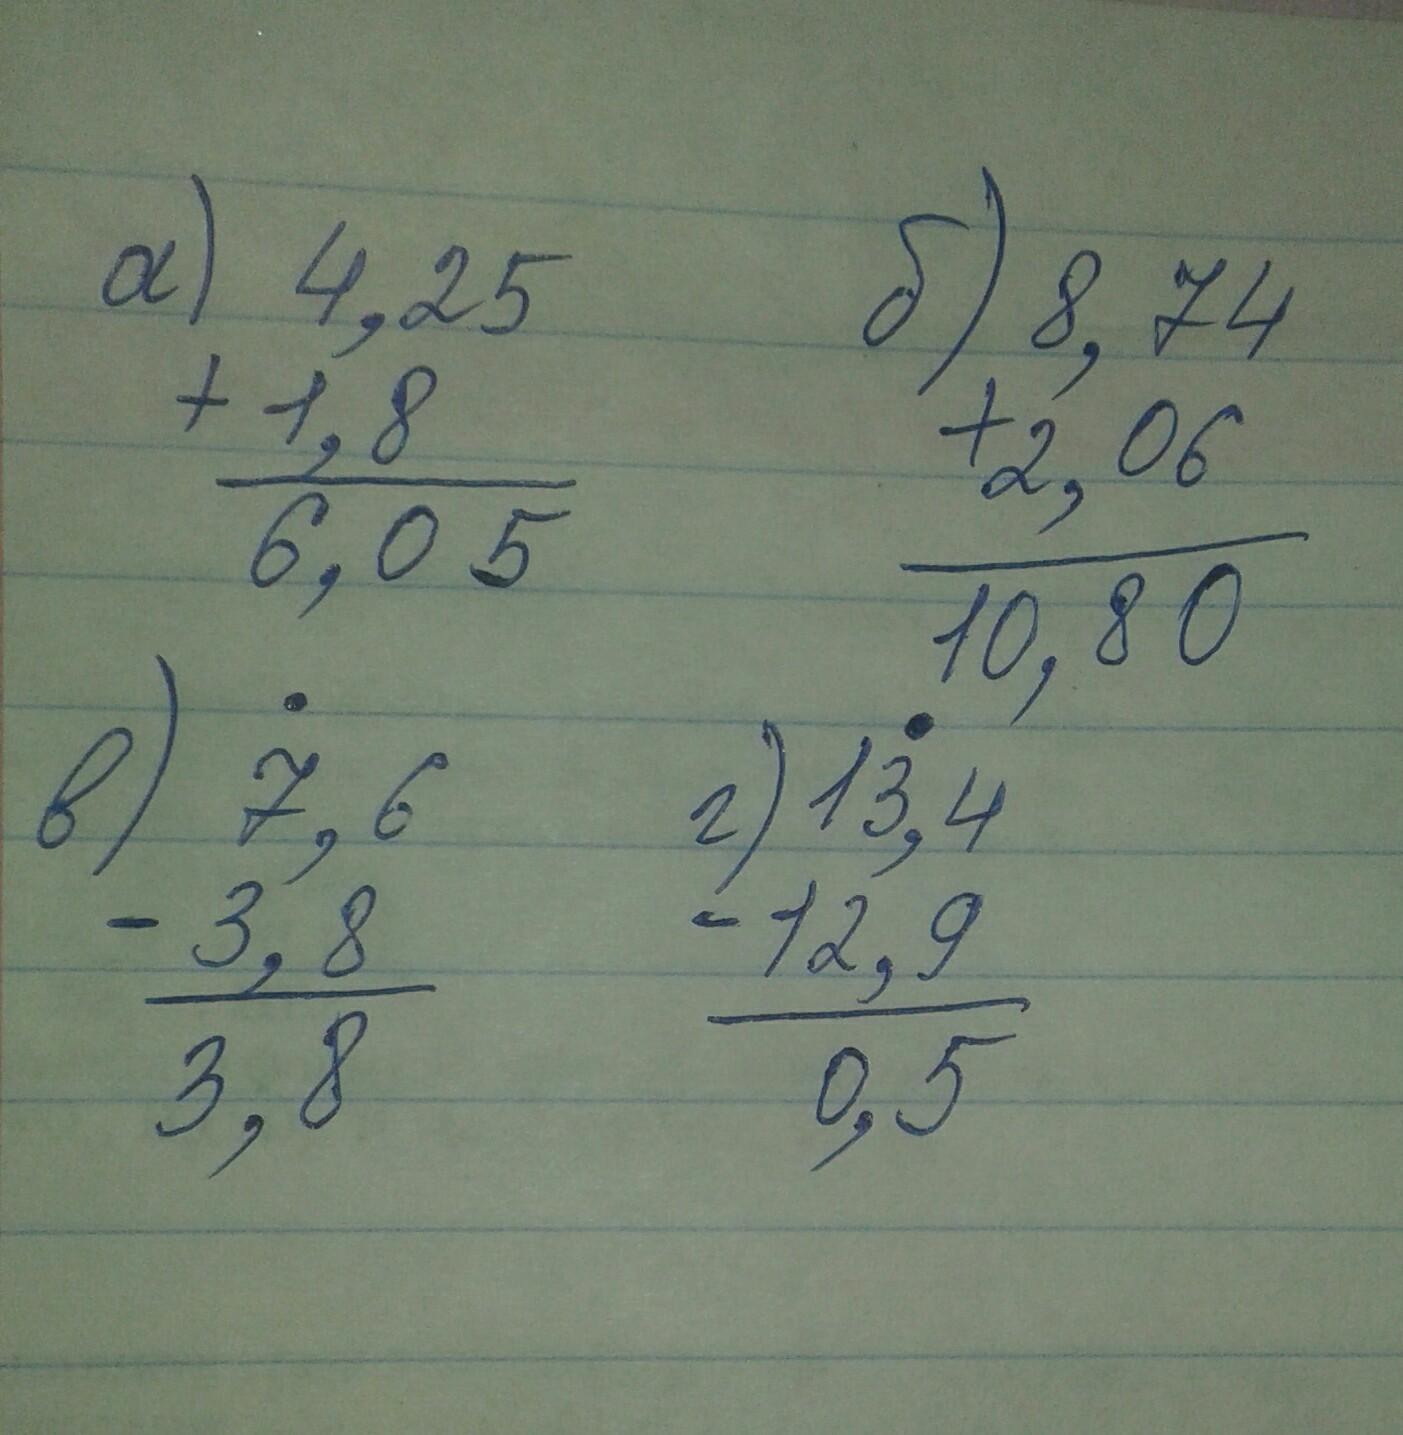 а) 4,25
+ 1,8
6,05
б) 8,74
+2,06
10,80
в) 7,6
- 3,8
3,8
г) 13,4
- 12,9
0,5